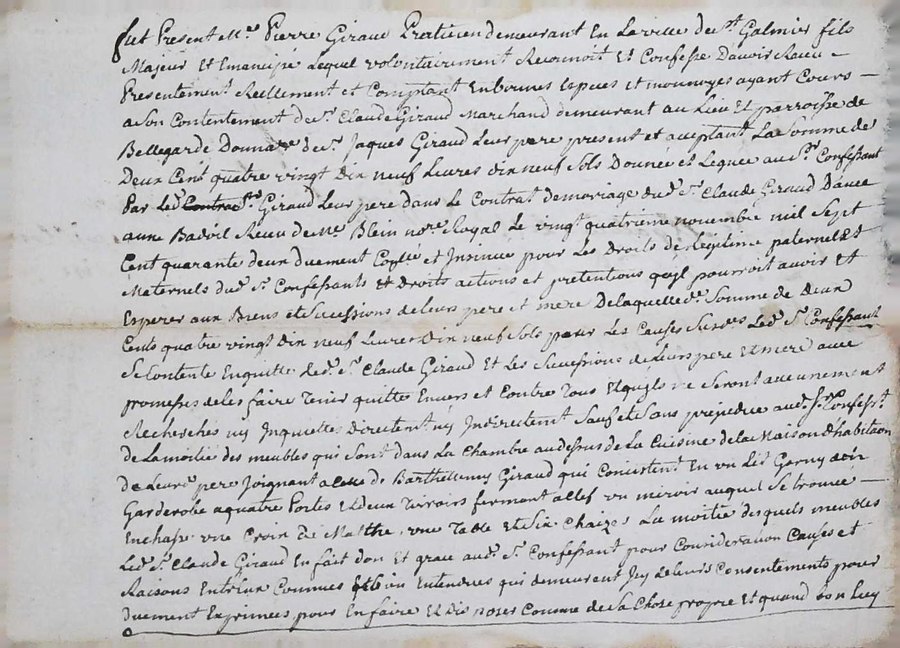 fut Present Mre Pierre Giraud Praticien demeurant En La ville de st Galmier fils
Majeur Et Emancipé Lequel volontairement Reconnoit Et Confesse D'avoir Receu –
Presentement Reellement et Comptant En bonnes Especes et monnoyes ayant Cours –
a Son Contentement de sr Claude Giraud Marchand demeurant au Lieu Et parroisse de
Bellegarde Donnare de sr Jaques Giraud Leur pere present et aceptant La Somme de
Deux Cent quatre vingt Dix neuf Livres dix neuf Sols Donnée et Leguée aud sr Confessant
Par Led Contrac sr Giraud Leur pere dans Le Contrat de mariage dud sr Claude Giraud D'avec
anne Badoil Receu de Me Blein nore Royal Le vingt quatrieme novembre mil Sept
Cent quarante deux duement Coplle et Insinué pour Les Droits de Legitime paternel Et
Maternels dud sr Confessants Et Droits actions et pretentions quyl pourroit avoir Et
Esperer aux Biens et Sucessions de Leurs pere et mere De laquelle de Somme de Deux
Cents quatre vingt Dix neuf Livres Dix neuf Sols pour Les Causes Susdes Led sr Confessant
Se Contente En quitte led sr Claude Giraud Et Les Sucessions de Leurs pere Et mere avec
promesses de les faire Tenir quittes Envers et Contre Tous Et quyls ne Seront aucunement
Recherches ny Inquiettes directemt ny Indirectemt Sauf et Sans prejudice aud sr Confesst
de La moitié des meubles qui Sont dans La Chambre au dessus de La Cuisine de la Maison d'habitation
de Leurd pere Joignant a Celle de Barthellemy Giraud qui Consistent En un Lit Garny
Garderobe a quatre Portes Et deux Tiroirs fermant a Clef un miroir auquel Se trouve –
Enchasse une Croix De Malthe, une Table Et Six Chaizes La moitié desquels meubles
Led sr Claude Giraud En fait don Et grace aud sr Confessant pour Consideration Causes et
Raisons Entr'eux Connues Et bien Entendues qui demeurent Icy de Leurs Consentements pour
duement Exprimées pour En faire Et disposer Comme de Sa Chose propre Et quand bon Luy